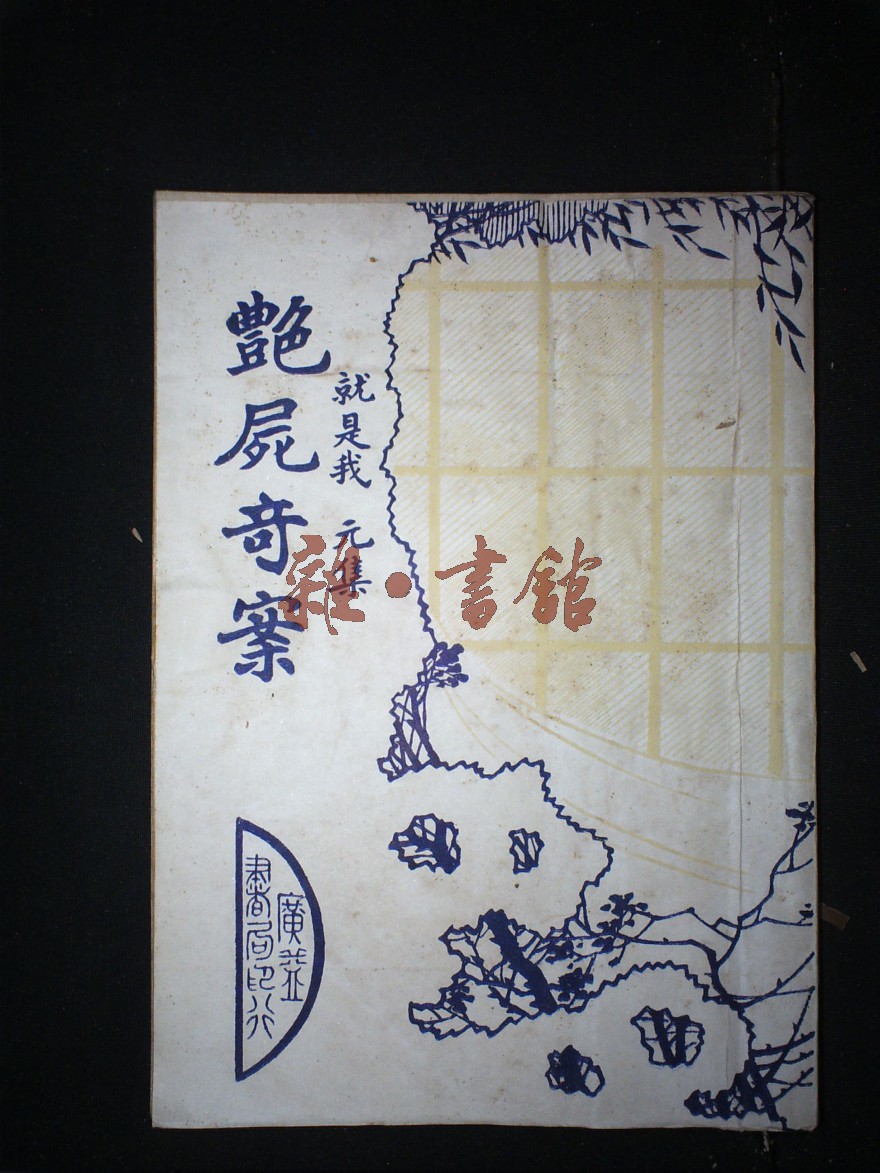 就是我 元集
艷屍奇案
雜·書館
廣益
書局印行